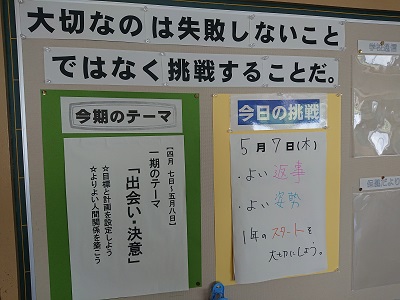 大切なのは失敗しないこと
ではなく挑戦することだ。
今期のテーマ
【四月七日～五月八日】
一期のテーマ
「出会い・決意」
☆目標と計画を設定しよう
☆よりよい人間関係を築こう
今日の挑戦
5月7日(木)
・よい返事
・よい姿勢
1年のスタートを
大切にしよう。